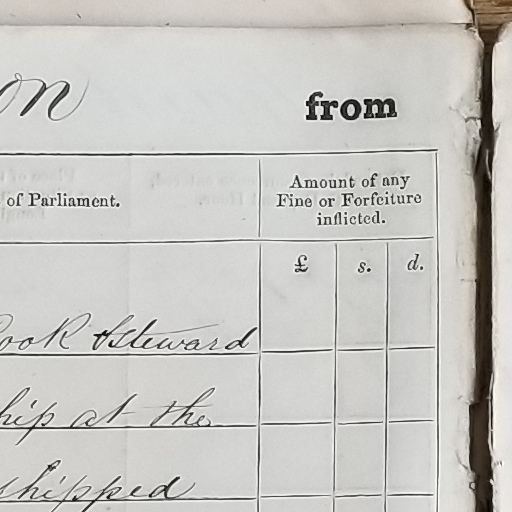 on from
of Parliament. Amount of any
Fine or Forfeiture
inflicted.
£ s. d.
Cook & Steward
ship at the
shipped